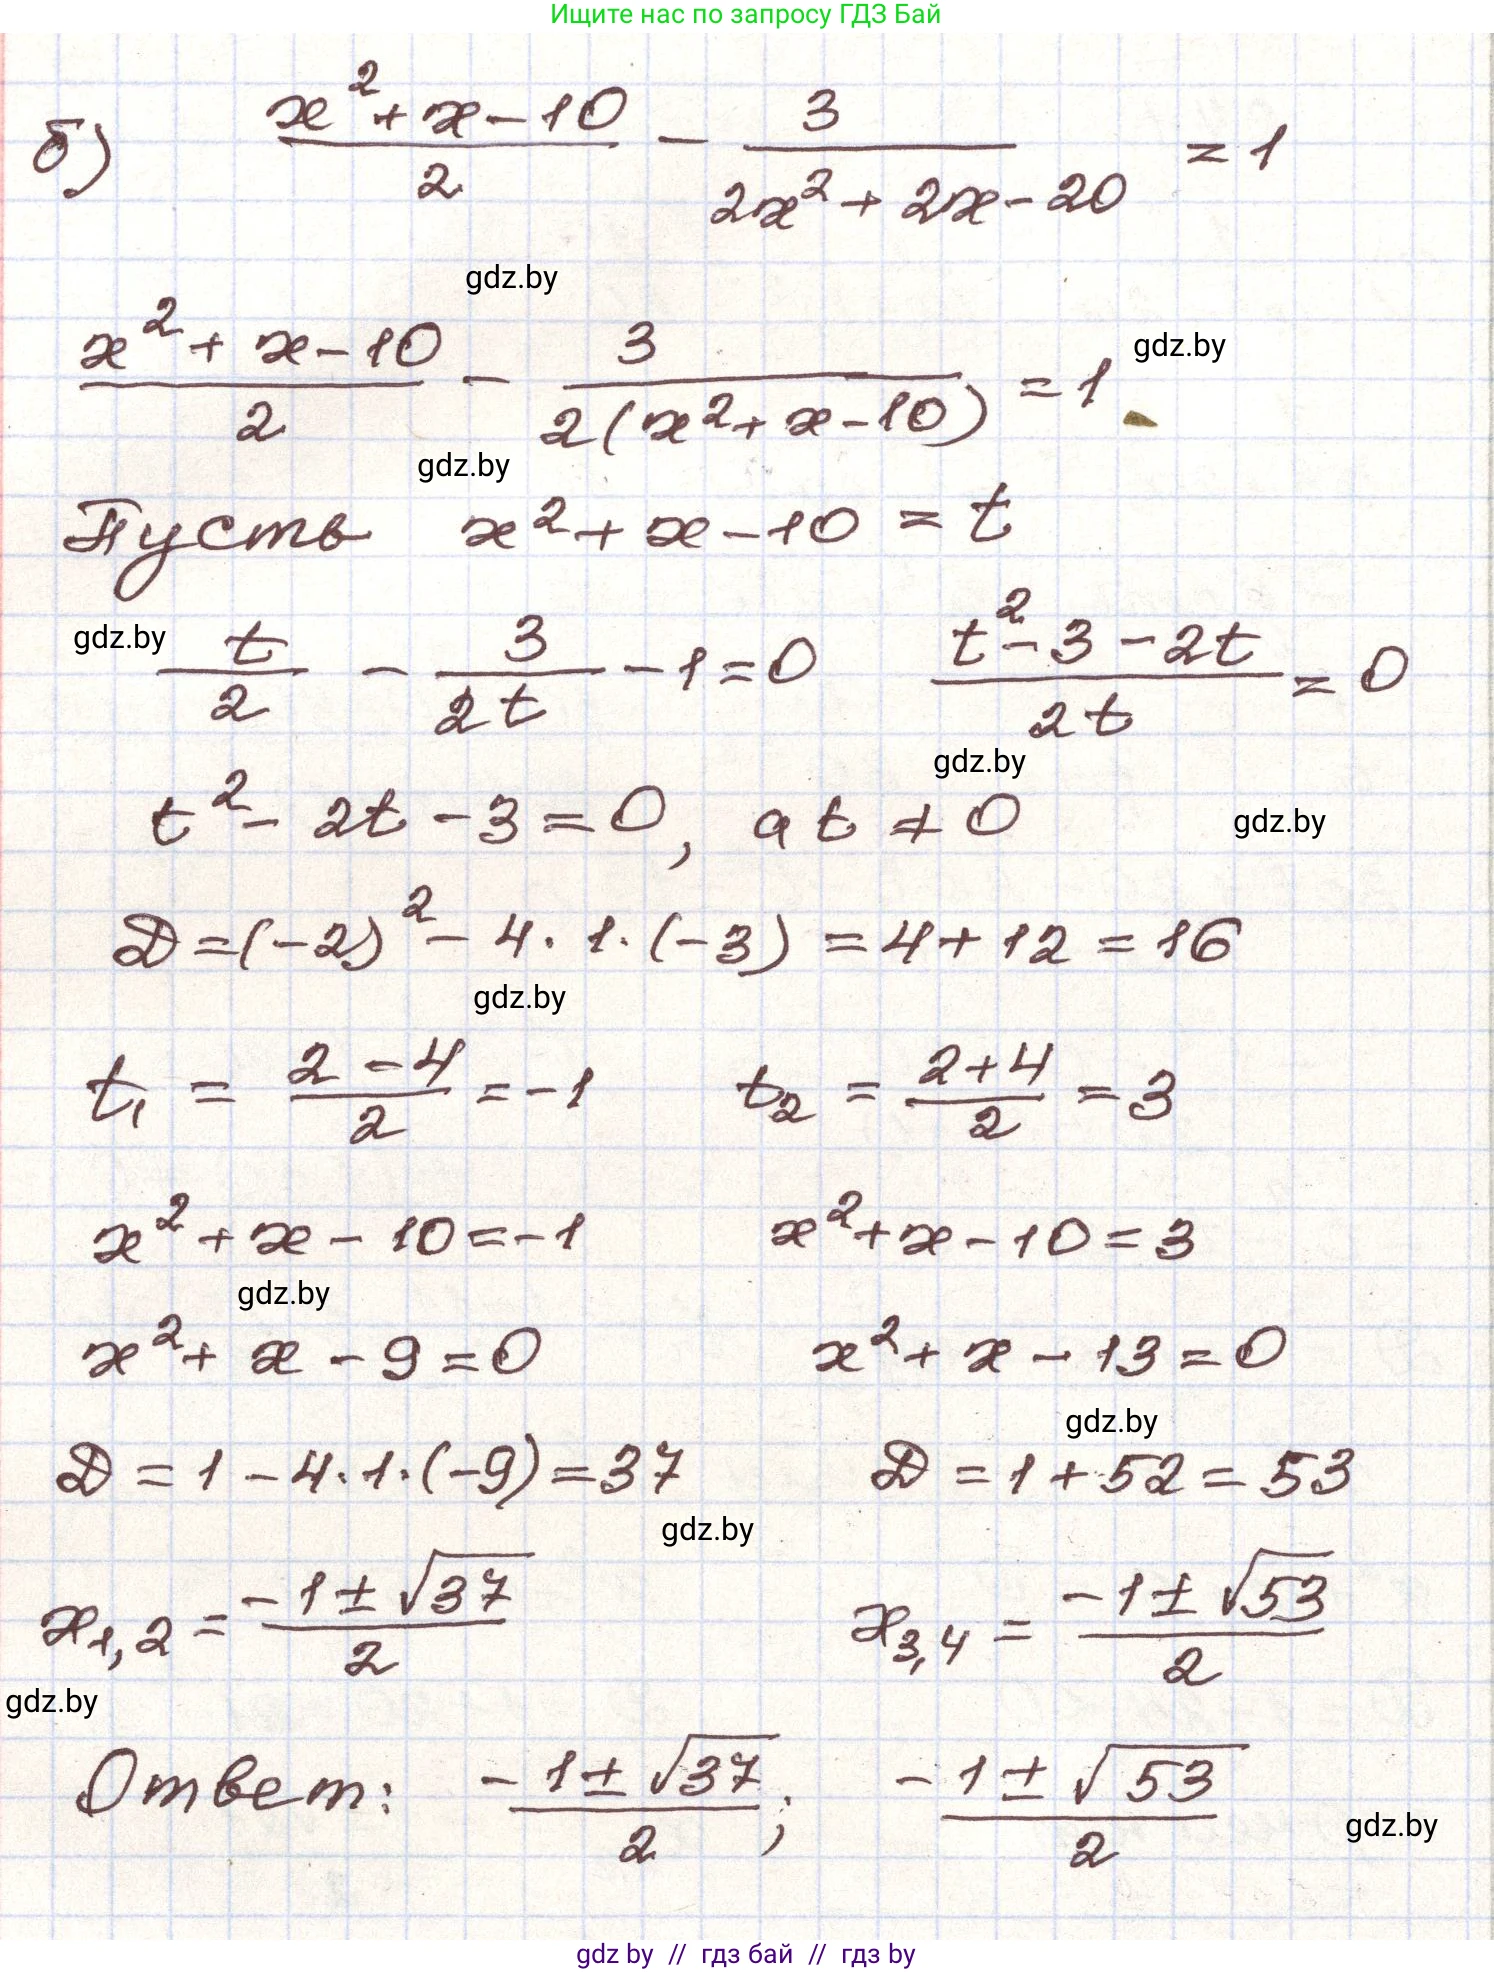 Ищите нас по запросу ГДЗ Бай
б) (x² + x - 10)/2 - 3/(2x² + 2x - 20) = 1
gdz.by
(x² + x - 10)/2 - 3/(2(x² + x - 10)) = 1
gdz.by
gdz.by
Пусть x² + x - 10 = t
gdz.by
t/2 - 3/(2t) - 1 = 0 (t² - 3 - 2t)/(2t) = 0
gdz.by
t² - 2t - 3 = 0, а t ≠ 0
gdz.by
D = (-2)² - 4 · 1 · (-3) = 4 + 12 = 16
gdz.by
t₁ = (2 - 4)/2 = -1 t₂ = (2 + 4)/2 = 3
x² + x - 10 = -1 x² + x - 10 = 3
gdz.by
x² + x - 9 = 0 x² + x - 13 = 0
gdz.by
D = 1 - 4 · 1 · (-9) = 37 D = 1 + 52 = 53
gdz.by
x₁,₂ = (-1 ± √37)/2 x₃,₄ = (-1 ± √53)/2
gdz.by
Ответ: (-1 ± √37)/2; (-1 ± √53)/2
gdz.by
gdz by // гдз бай // гдз by